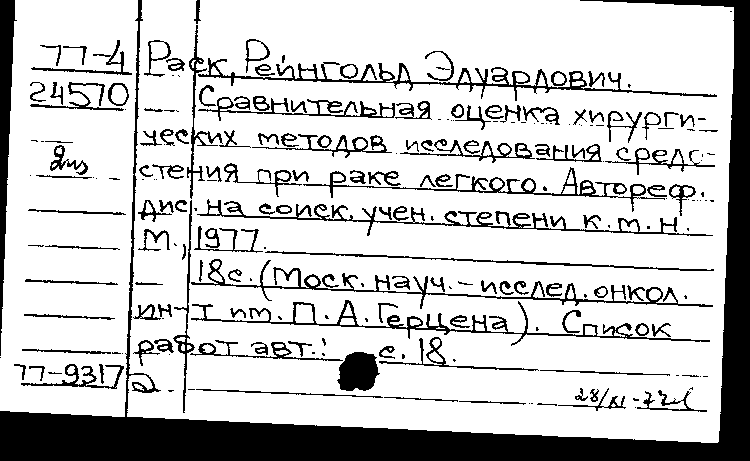 77-4 Раск, Рейнгольд Эдуардович.
24570 Сравнительная оценка хирурги-
ческих методов исследования средо-
стения при раке легкого. Автореф.
дис. на соиск. учен. степени к.м.н.
М., 1977.
18с. (Моск. науч.-исслед. онкол.
ин-т им. П.А.Герцена). Список
работ авт.: с. 18.
77-9317 2
28/XI-77